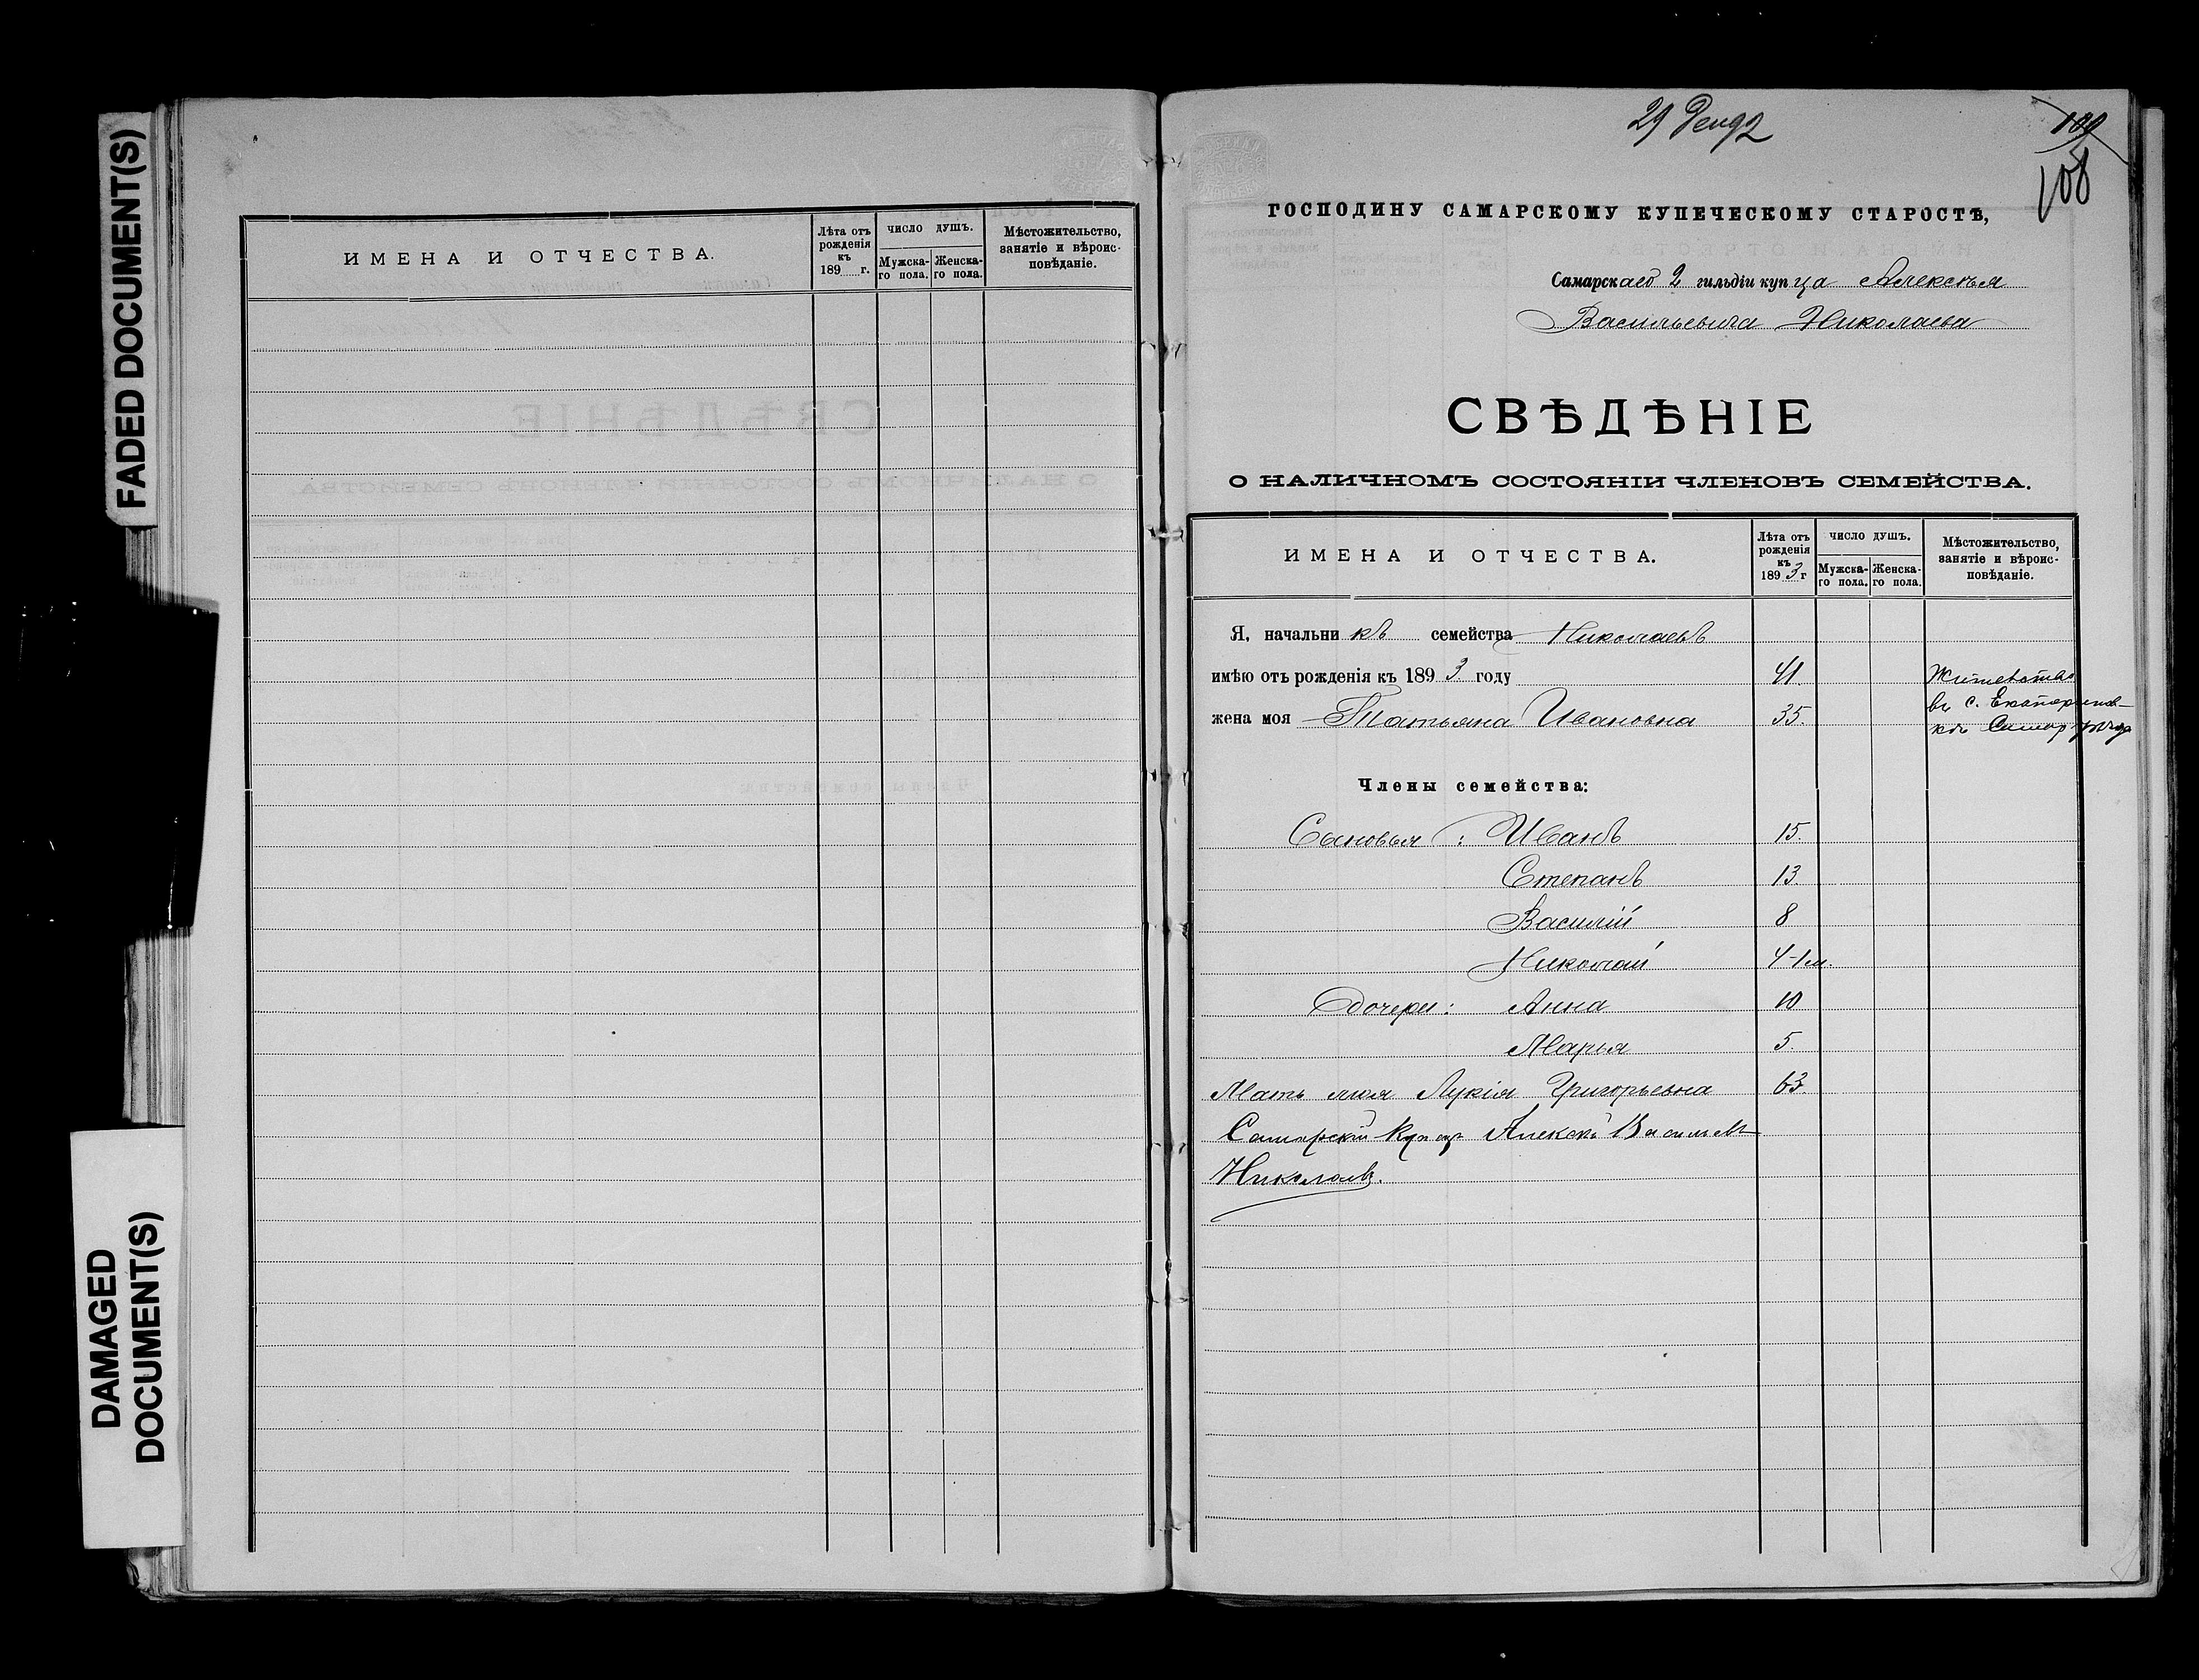 FADED DOCUMENT(S)
DAMAGED
DOCUMENT(S)
ИМЕНА И ОТЧЕСТВА.
Лѣта отъ рожденія къ 189 г.
ЧИСЛО ДУШЪ.
Мужска-го пола.
Женска-го пола.
Мѣстожительство, занятіе и вѣроис-повѣданіе.
29 Дек 92
109
108
ГОСПОДИНУ САМАРСКОМУ КУПЕЧЕСКОМУ СТАРОСТѢ,
Самарскаго 2 гильдіи купца Алексѣя
Васильевича Николаева
СВѢДѢНІЕ
О НАЛИЧНОМЪ СОСТОЯНІИ ЧЛЕНОВЪ СЕМЕЙСТВА.
ИМЕНА И ОТЧЕСТВА.
Лѣта отъ рожденія къ 1893 г
ЧИСЛО ДУШЪ.
Мужска-го пола.
Женска-го пола.
Мѣстожительство, занятіе и вѣроис-повѣданіе.
Я, начальникъ семейства Николаевъ
имѣю отъ рожденія къ 1893 году 41. Жительство
жена моя Татьяна Ивановна 35. въ с. Екатеринов-
кѣ Самар. уѣзда
Члены семейства:
Сыновья: Иванъ 15.
Степанъ 13.
Василій 8
Николай 4-1м.
Дочери: Анна 10
Марья 5.
Мать моя Лукія Григорьевна 63.
Самарскій Купецъ Алексѣй Васильев
Николаевъ.